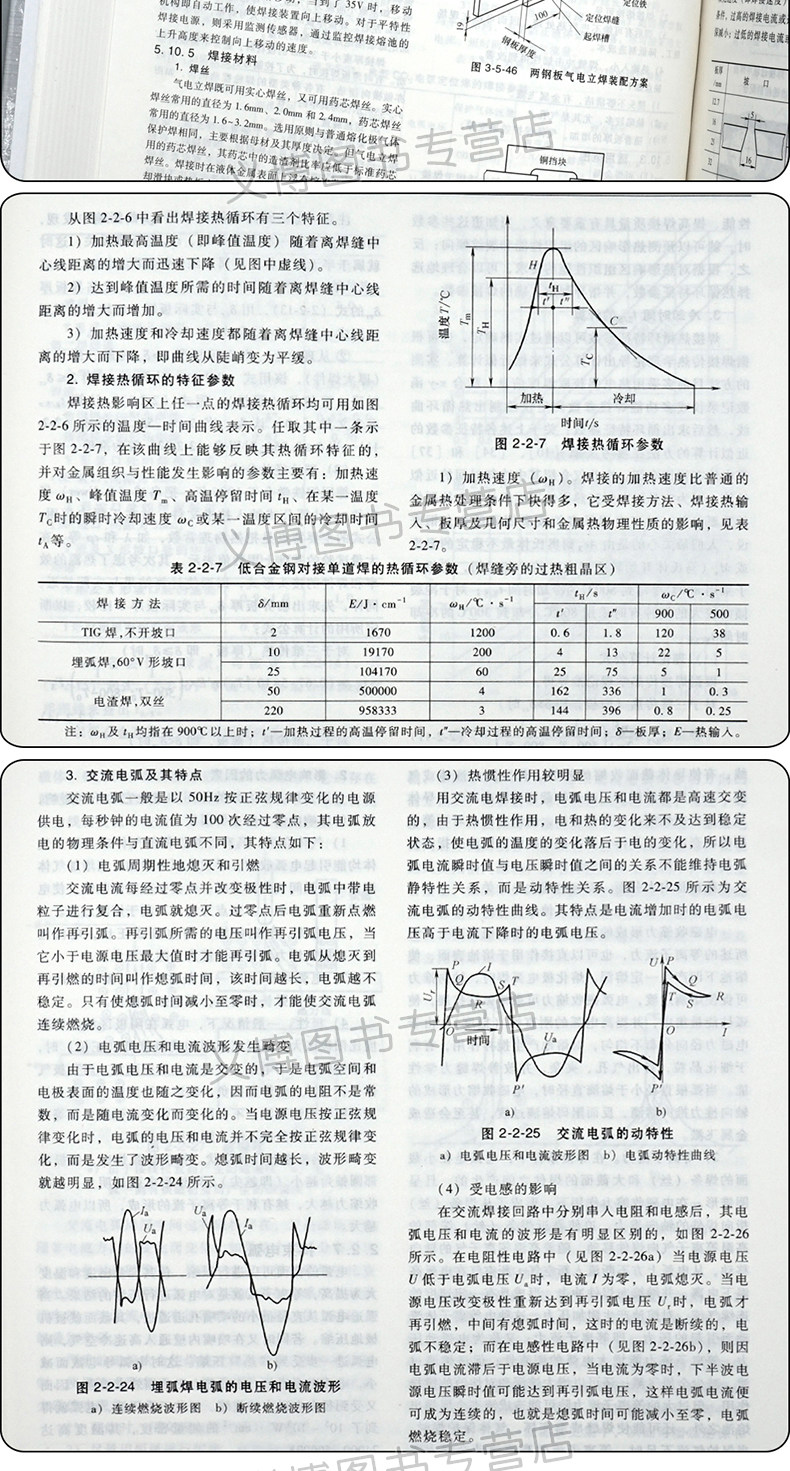 机构即自动工作,使焊接装置向上移动。对于平特性
焊接电源,则采用监测传感器,通过监控焊接熔池的
上升高度来控制向上移动的速度。
5.10.5 焊接材料
1. 焊丝
气电立焊既可用实心焊丝,又可用药芯焊丝。实心
焊丝常用的直径为1.6mm、2.0mm和2.4mm,药芯焊丝
常用的直径为1.6~3.2mm。选用原则与普通熔化极气体
保护焊相同,主要根据母材及其厚度决定。但气电立焊
用的药芯焊丝,其药芯中的造渣剂比率应低于标准药芯
焊丝。焊接时在液体金属表面上
定位焊缝
起焊槽
100
钢板厚度
图 3-5-46 两钢板气电立焊装配方案
铜挡块
板厚
/mm
坡口
12.7
16
25
32
5
16
从图2-2-6中看出焊接热循环有三个特征。
1)加热最高温度(即峰值温度)随着离焊缝中
心线距离的增大而迅速下降(见图中虚线)。
2)达到峰值温度所需的时间随着离焊缝中心线
距离的增大而增加。
3)加热速度和冷却速度都随着离焊缝中心线距
离的增大而下降,即曲线从陡峭变为平缓。
2. 焊接热循环的特征参数
焊接热影响区上任一点的焊接热循环均可用如图
2-2-6所示的温度—时间曲线表示。任取其中一条示
于图2-2-7,在该曲线上能够反映其热循环特征的,
并对金属组织与性能发生影响的参数主要有:加热速
度ωH、峰值温度Tm、高温停留时间tH、在某一温度
TC时的瞬时冷却速度ωC或某一温度区间的冷却时间
tA等。
温度T/℃
Tm
TH
H
tH
t′ t″
C
TC
加热 冷却
时间t/s
图 2-2-7 焊接热循环参数
1)加热速度(ωH)。焊接的加热速度比普通的
金属热处理条件下快得多,它受焊接方法、焊接热输
入、板厚及几何尺寸和金属热物理性质的影响,见表
2-2-7。
表 2-2-7 低合金钢对接单道焊的热循环参数(焊缝旁的过热粗晶区)
焊接方法 δ/mm E/J·cm⁻¹ ωH/℃·s⁻¹ tH/s ωC/℃·s⁻¹
t′ t″ 900 500
TIG焊,不开坡口 2 1670 1200 0.6 1.8 120 38
埋弧焊,60°V形坡口 10 19170 200 4 13 22 5
25 104170 60 25 75 5 1
电渣焊,双丝 50 500000 4 162 336 1 0.3
220 958333 3 144 396 0.8 0.25
注:ωH及tH均指在900℃以上时;t′—加热过程的高温停留时间,t″—冷却过程的高温停留时间;δ—板厚;E—热输入。
3. 交流电弧及其特点
交流电弧一般是以50Hz按正弦规律变化的电源
供电,每秒钟的电流值为100次经过零点,其电弧放
电的物理条件与直流电弧不同,其特点如下:
(1)电弧周期性地熄灭和引燃
交流电流每经过零点并改变极性时,电弧中带电
粒子进行复合,电弧就熄灭。过零点后电弧重新点燃
叫作再引弧。再引弧所需的电压叫作再引弧电压,当
它小于电源电压最大值时才能再引弧。电弧从熄灭到
再引燃的时间叫作熄弧时间,该时间越长,电弧越不
稳定。只有使熄弧时间减小至零时,才能使交流电弧
连续燃烧。
(2)电弧电压和电流波形发生畸变
由于电弧电压和电流是交变的,于是电弧空间和
电极表面的温度也随之变化,因而电弧的电阻不是常
数,而是随电流变化而变化的。当电源电压按正弦规
律变化时,电弧的电压和电流并不完全按正弦规律变
化,而是发生了波形畸变。熄弧时间越长,波形畸变
就越明显,如图2-2-24所示。
Ua Ia Ua Ia
a) b)
图 2-2-24 埋弧焊电弧的电压和电流波形
a) 连续燃烧波形图 b) 断续燃烧波形图
(3)热惯性作用较明显
用交流电焊接时,电弧电压和电流都是高速交变
的,由于热惯性作用,电和热的变化来不及达到稳定
状态,使电弧的温度的变化落后于电的变化,所以电
弧电流瞬时值与电压瞬时值之间的关系不能维持电弧
静特性关系,而是动特性关系。图2-2-25所示为交
流电弧的动特性曲线。其特点是电流增加时的电弧电
压高于电流下降时的电弧电压。
P I
Q
S T
R
O
时间
Ua
P′
a)
U P
Q
T S R
O I
P′
b)
图 2-2-25 交流电弧的动特性
a) 电弧电压和电流波形图 b) 电弧动特性曲线
(4)受电感的影响
在交流焊接回路中分别串入电阻和电感后,其电
弧电压和电流的波形是有明显区别的,如图2-2-26
所示。在电阻性电路中(见图2-2-26a)当电源电压
U低于电弧电压Ua时,电流I为零,电弧熄灭。当电
源电压改变极性重新达到再引弧电压Ur时,电弧才
再引燃,中间有熄弧时间,这时的电流是断续的,电
弧不稳定;而在电感性电路中(见图2-2-26b),则因
电弧电流滞后于电源电压,当电流为零时,下半波电
源电压瞬时值可能达到再引弧电压,这样电弧电流便
可成为连续的,也就是熄弧时间可能减小至零,电弧
燃烧稳定。
义博图书专营店